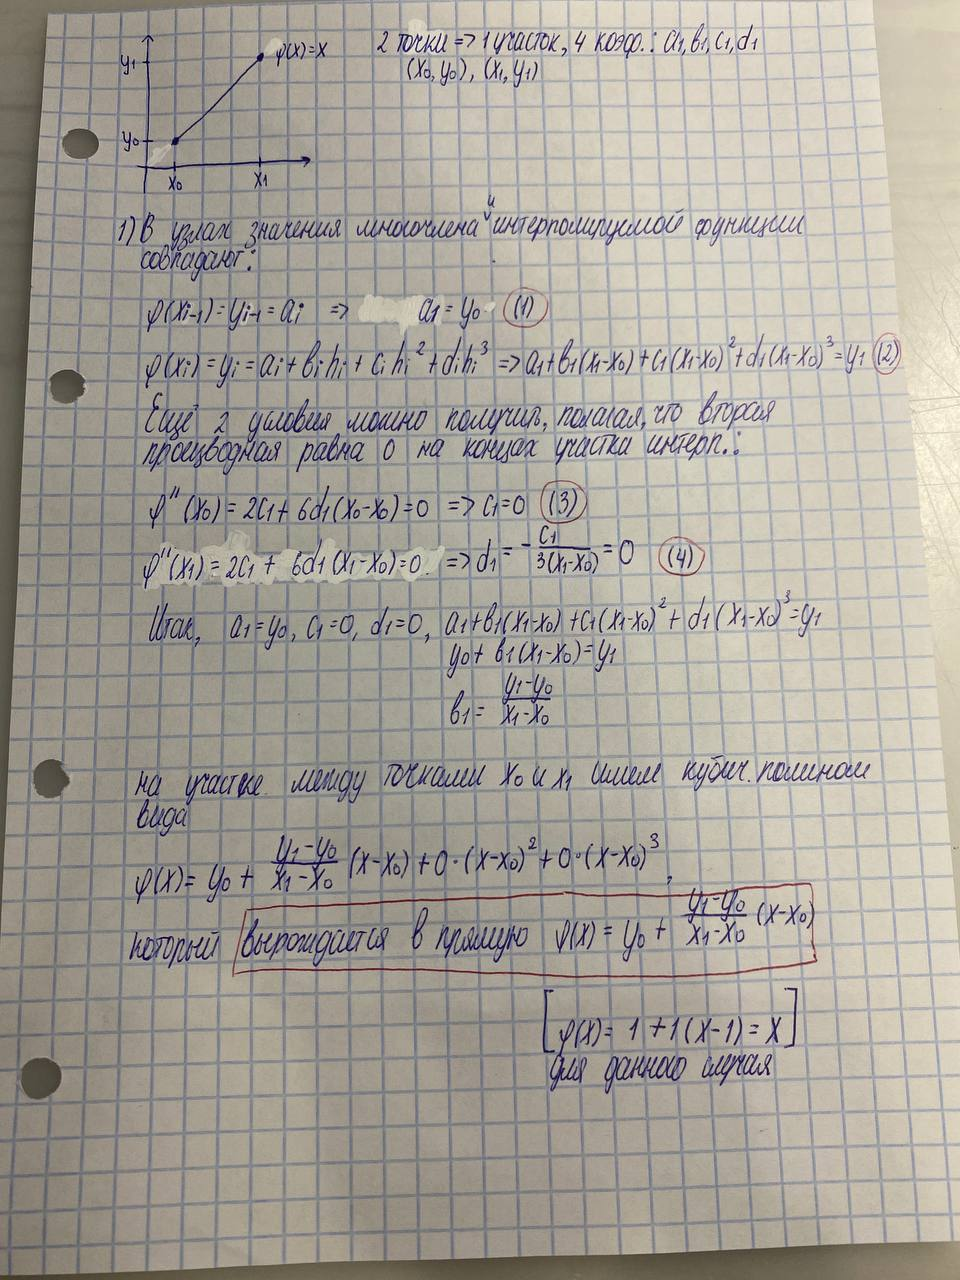 y₁
φ(x)=x
y₀
x₀
x₁
2 точки => 1 участок, 4 коэф.: a₁, b₁, c₁, d₁
(x₀, y₀), (x₁, y₁)
1) В узлах значения многочлена и интерполируемой функции
совпадают:
φ(xᵢ₋₁) = yᵢ₋₁ = aᵢ => a₁ = y₀ (1)
φ(xᵢ) = yᵢ = aᵢ + bᵢhᵢ + cᵢhᵢ² + dᵢhᵢ³ => a₁+b₁(x₁-x₀)+c₁(x₁-x₀)²+d₁(x₁-x₀)³=y₁ (2)
Ещё 2 условия можно получить, полагая, что вторая
производная равна 0 на концах участка интерп.:
φ''(x₀) = 2c₁ + 6d₁(x₀-x₀) = 0 => c₁=0 (3)
φ''(x₁) = 2c₁ + 6d₁(x₁-x₀)=0 => d₁ = - c₁/3(x₁-x₀) = 0 (4)
Итак, a₁=y₀, c₁=0, d₁=0, a₁+b₁(x₁-x₀)+c₁(x₁-x₀)²+d₁(x₁-x₀)³=y₁
y₀+ b₁(x₁-x₀)=y₁
b₁= y₁-y₀/x₁-x₀
на участке между точками x₀ и x₁ имеем кубич. полином
вида
φ(x)= y₀ + y₁-y₀/x₁-x₀ (x-x₀)+0·(x-x₀)²+0·(x-x₀)³,
который вырождается в прямую φ(x) = y₀ + y₁-y₀/x₁-x₀ (x-x₀)
[φ(x)= 1+1(x-1)=x]
для данного случая